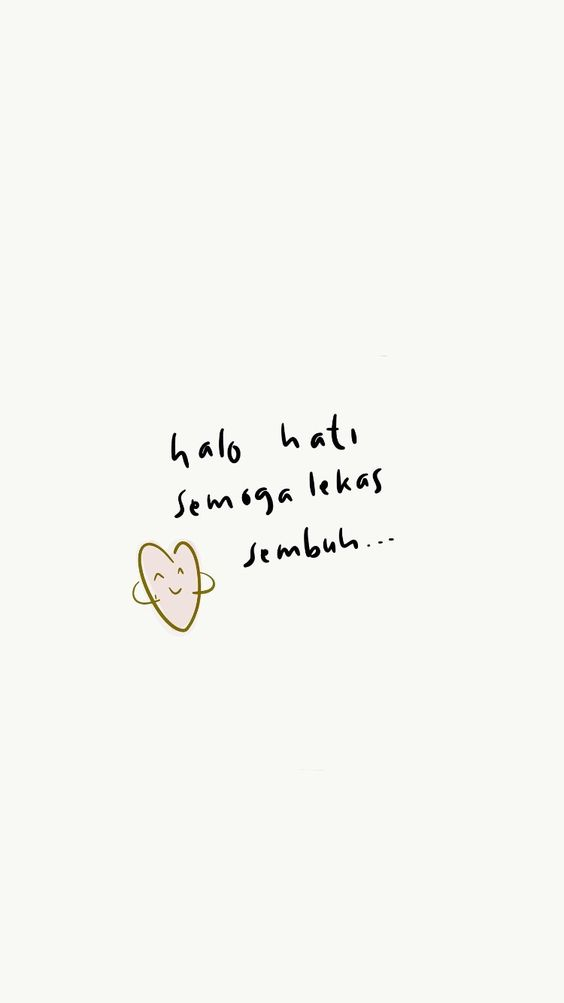 halo hati
semoga lekas
sembuh...